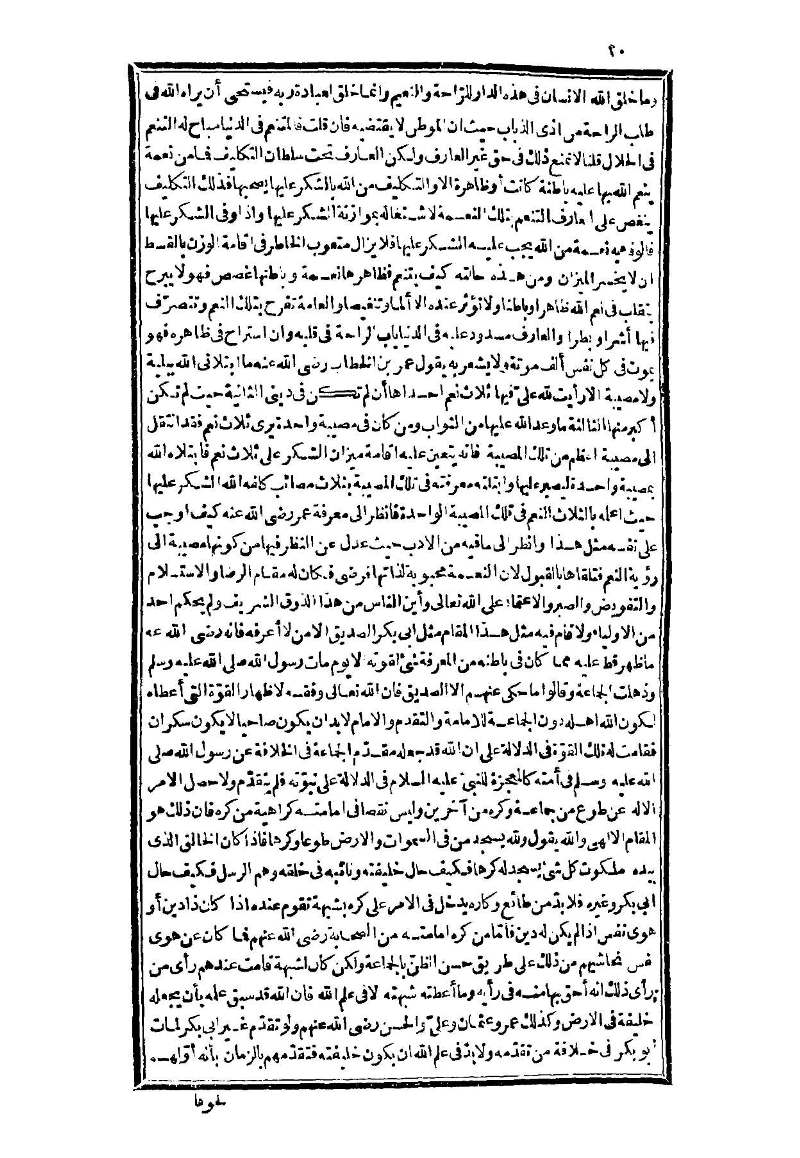 ٢٠
وما خلق الله الانسان فى هذه الدار للراحة والنعيم وانما خلق لعبادة ربه فيستحى أن يراه الله فى
طلب الراحة من اذى الذباب حيث ان الموطن لا يقتضيه فان قلت فالمتنعم فى الدنيا مباح له التنعم
فى الحلال قلنا لا نمنع ذلك فى حق غير العارف ولكن العارف تحت سلطان التكليف فما من نعمة
ينعم الله بها عليه باطنة كانت أو ظاهرة الا والتكليف من الله بالشكر عليها يصحبها فذلك التكليف
ينغص على العارف التنعم بتلك النعمة لاشتغاله بموازنة الشكر عليها واذا وفى الشكر عليها
فالوفاء به نعمة من الله يجب عليه الشكر عليها فلا يزال متعوب الخاطر فى اقامة الوزن بالقسط
ان لا يخسر الميزان ومن هذه حالته كيف يتنعم فظاهرها نعمة وباطنها غصص فهو لا يبرح
يتقلب فى نعم الله ظاهرا وباطنا ولا تؤثر عنده الا ألما وتنغيصا والعامة تفرح بتلك النعم وتتصرف
فيها أشرا وبطرا والعارف مسدود عليه فى الدنيا باب الراحة فى قلبه وان استراح فى ظاهره فهو
يموت فى كل نفس ألف موتة ولا يشعر به يقول عمر بن الخطاب رضى الله عنه ما ابتلانى الله ببلية
ولا مصيبة الا رأيت لله على فيها ثلاث نعم احداها أن لم تكن فى دينى الثانية حيث لم تكن
أكبر منها الثالثة ما وعد الله عليها من الثواب ومن كان فى مصيبة واحدة يرى ثلاث نعم فقد انتقل
الى مصيبة اعظم من تلك المصيبة فانه يتعين عليه اقامة ميزان الشكر على ثلاث نعم فابتلاه الله
بمصيبة واحدة ليصبر عليها وابتلته معرفته فى تلك المصيبة بثلاث مصائب كلفه الله الشكر عليها
حيث اعلمه بالثلاث النعم فى تلك المصيبة الواحدة فانظر الى معرفة عمر رضى الله عنه كيف اوجب
على نفسه مثل هذا وانظر الى ما فيه من الادب حيث عدل عن النظر فيها من كونها مصيبة الى
رؤية النعم فتلقاها بالقبول لان النعمة محبوبة لذاتها فرضى فكان له مقام الرضا والاستسلام
والتفويض والصبر والاعتماد على الله تعالى وأين الناس من هذا الذوق الشريف ولم يحكم احد
من الاولياء ولا قام فيه مثل هذا المقام مثل ابى بكر الصديق الا من لا أعرفه فانه رضى الله عنه
ما ظهر قط عليه مما كان فى باطنه من المعرفة شئ لقوته الا يوم مات رسول الله صلى الله عليه وسلم
وذهلت الجماعة وقالوا ما حكى عنهم الا الصديق فان الله تعالى وفقه لاظهار القوة التى أعطاه
لكون الله اهله دون الجماعة للامامة والتقدم والامام لابد ان يكون صاحيا لا يكون سكران
فقامت له تلك القوة فى الدلالة على ان الله قد جعله مقدم الجماعة فى الخلافة عن رسول الله صلى
الله عليه وسلم فى أمته كالمعجزة للنبى عليه السلام فى الدلالة على نبوته فلم يتقدم ولا حصل الامر
الا له عن طوع من جماعة وكره من آخرين وليس نقصا فى امامته كراهية من كره فان ذلك هو
المقام الالهى والله يقول ولله يسجد من فى السموات والارض طوعا وكرها فاذا كان الخالق الذى
بيده ملكوت كل شئ يسجد له كرها فكيف حال خليفته ونائبه فى خلقه وهم الرسل فكيف حال
ابى بكر وغيره فلا بد من طائع وكاره يدخل فى الامر على كره بشبهة تقوم عنده اذا كان ذا دين أو
هوى نفس اذا لم يكن له دين فأما من كره امامته من الصحابة رضى الله عنهم فما كان عن هوى
نفس نحاشيهم من ذلك على طريق حسن الظن بالجماعة ولكن كان لشبهة قامت عندهم رأى من
رأى ذلك انه أحق بها منه فى رأيه وما أعطته شبهته لا فى علم الله فان الله قد سبق علمه بأن يجعله
خليفة فى الارض وكذلك عمر وعثمان وعلى والحسن رضى الله عنهم ولو تقدم غير ابى بكر لمات
أبو بكر فى خلافة من تقدمه ولا بد فى علم الله ان يكون خليفته فتقدمهم بالزمان بأنه أولهم
لحوقا